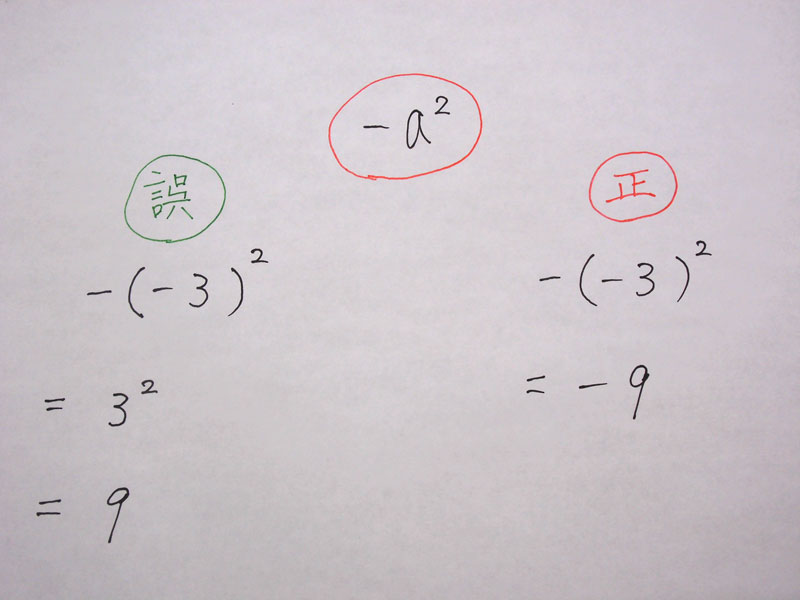 -a²
誤
-(-3)²
= 3²
= 9
正
-(-3)²
= -9